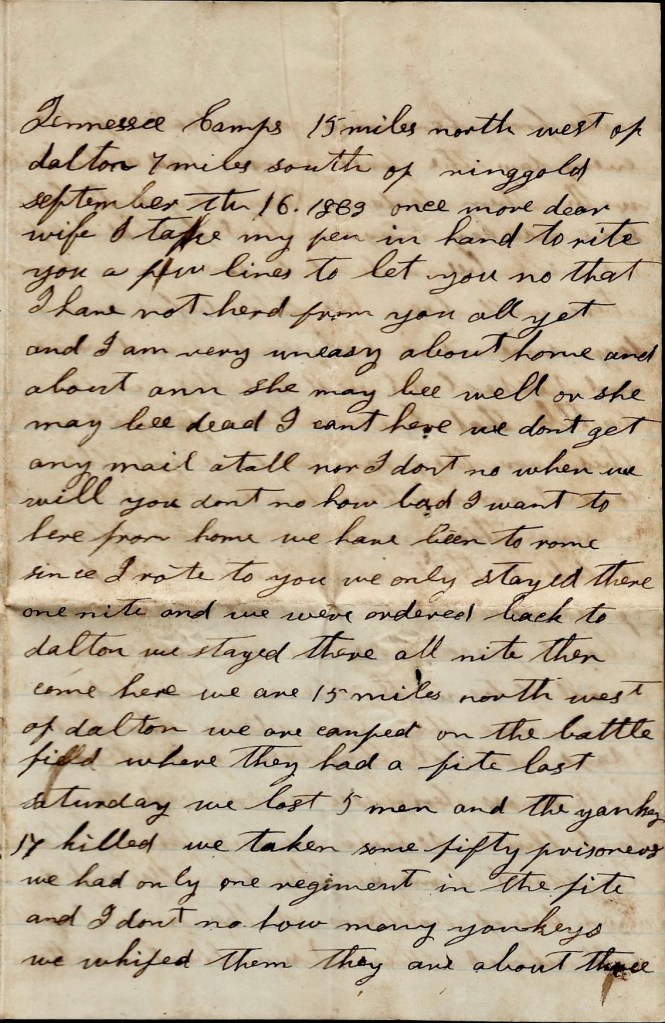 Tennessee Camps 15 miles north west of
dalton 7 miles south of ringgold
september the 16. 1863 once more dear
wife I take my pen in hand to rite
you a few lines to let you no that
I have not herd from you all yet
and I am very uneasy about home and
about ann she may bee well or she
may bee dead I cant here we dont get
any mail atall nor I dont no when we
will you dont no how bad I want to
here from home we have been to rome
since I rote to you we only stayed there
one nite and we were ordered back to
dalton we stayed there all nite then
come here we are 15 miles north west
of dalton we are camped on the battle
field where they had a fite last
saturday we lost 5 men and the yankey
17 killed we taken some fifty prisoners
we had only one regiment in the fite
and I dont no how many yankeys
we whiped them they are about three